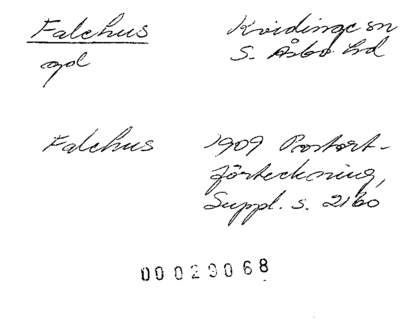 Falehus Kvidinge sn
gd S. Åsbo hd
Falehus 1909 Postort-
förteckning,
Suppl. s. 2160
00020068